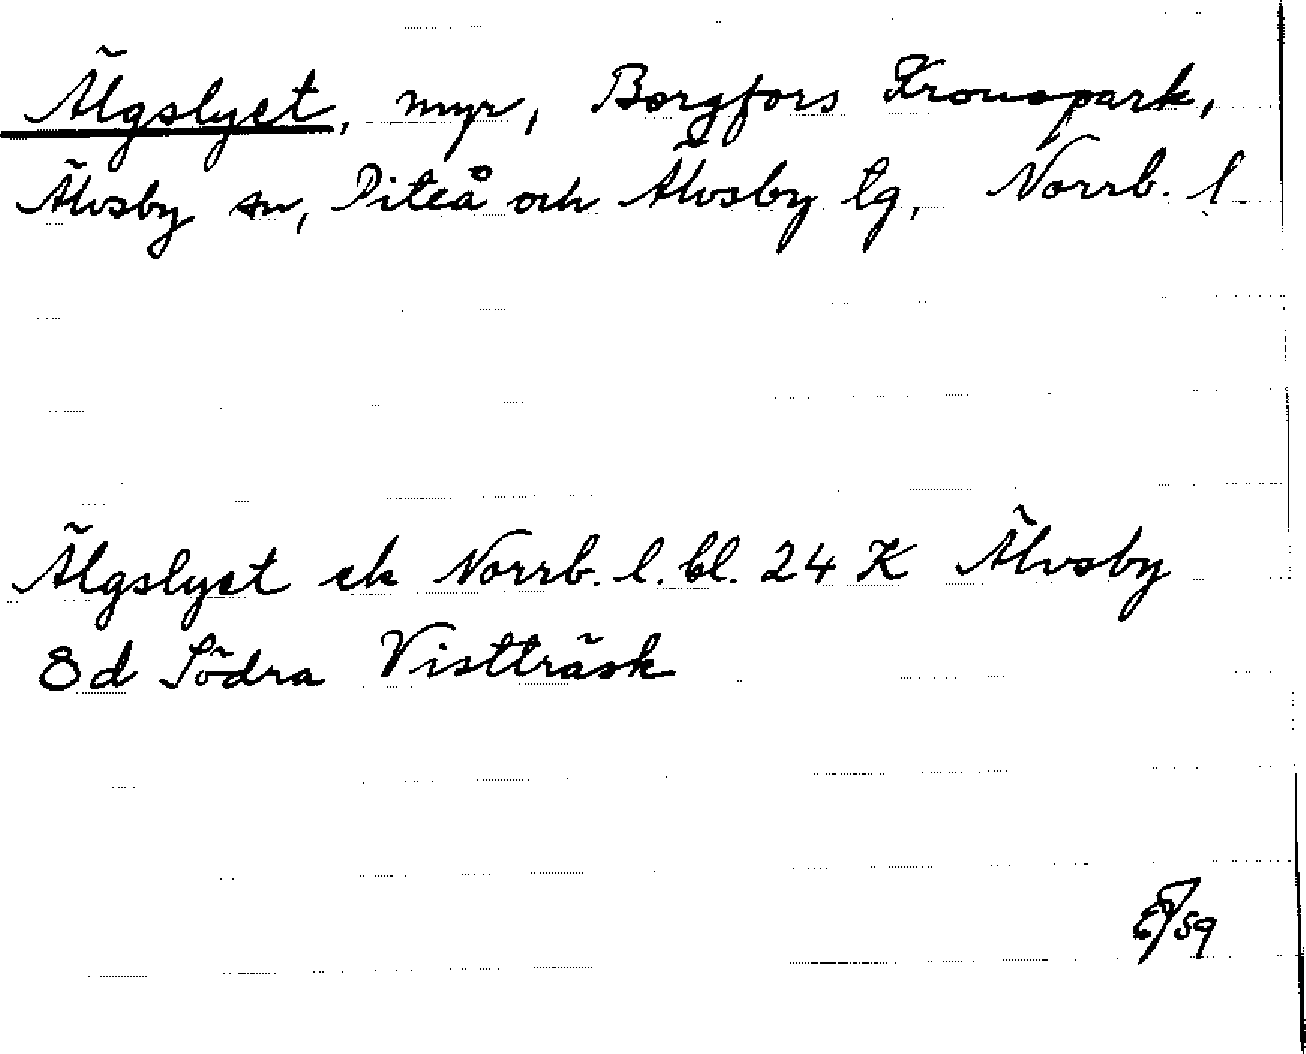 Älgslyet, myr, Borgfors Kronopark,
Älvsby sn, Piteå och Älvsby tg, Norrb. l.
Älgslyet ek Norrb. l. bl. 24 K Älvsby
8d Södra Vistträsk
/59